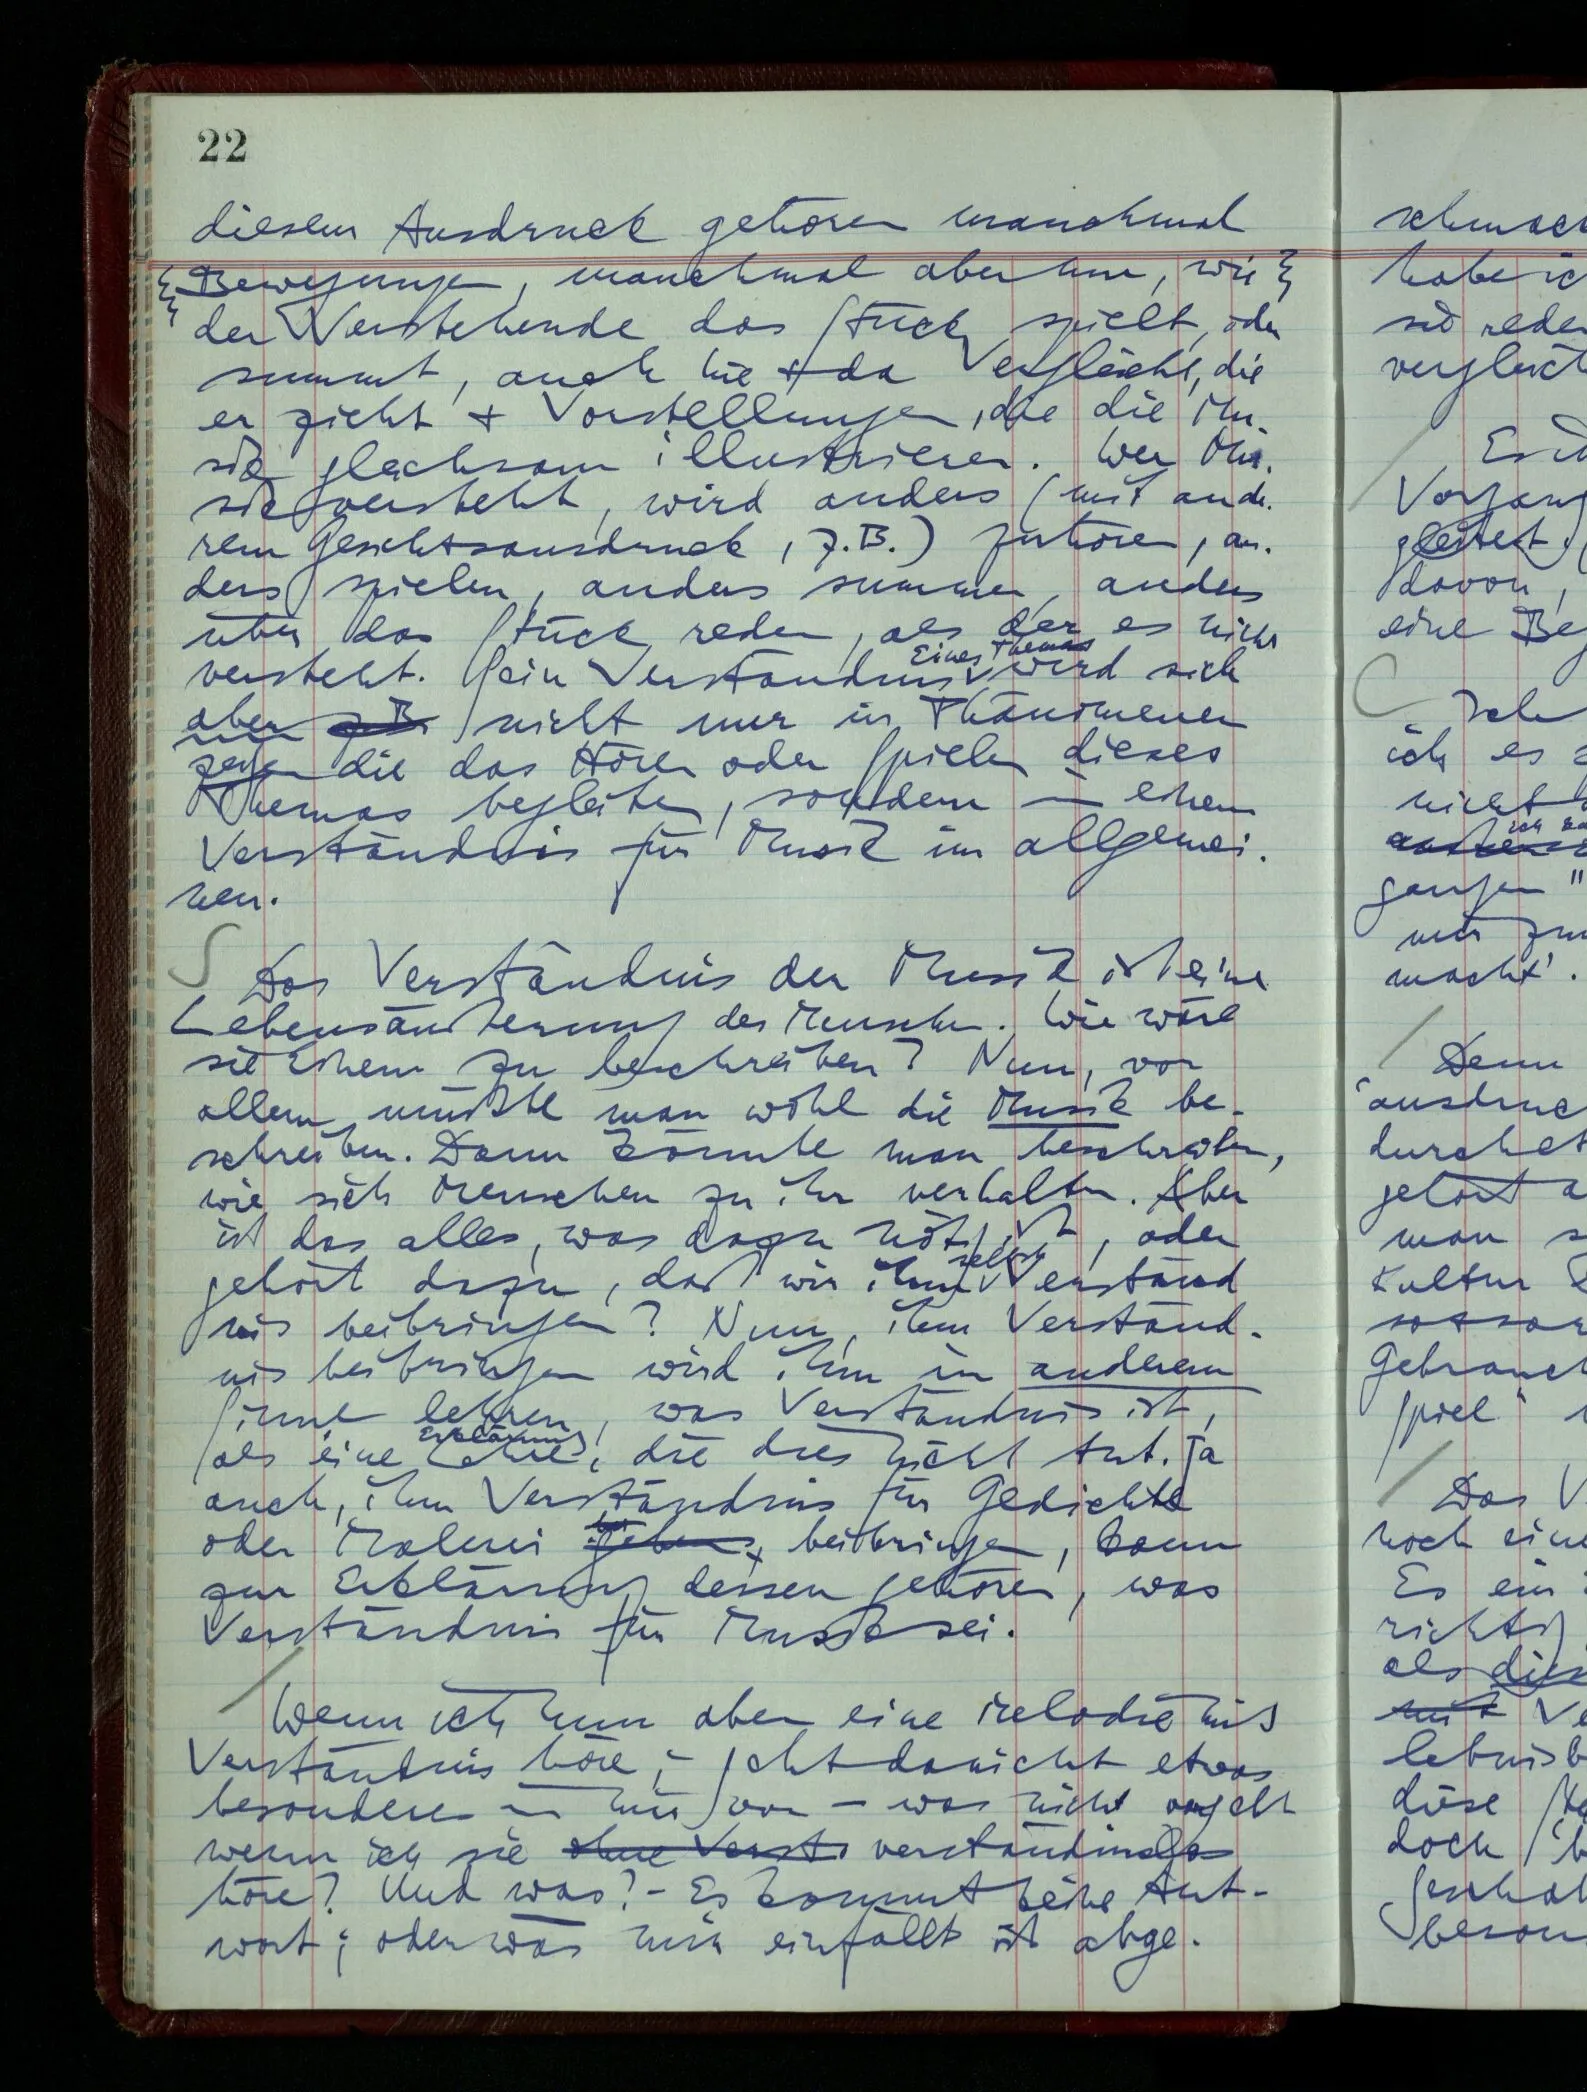 22
diesem Ausdruck gehören manchmal
Bewegungen, manchmal aber nur, wie
der Verstehende das Stück spielt, oder
summt, auch hie & da Vergleiche, die
er zieht & Vorstellungen, die die Mu-
sik gleichsam illustrieren. Wer Mu-
sik versteht, wird anders (mit ande-
rem Gesichtsausdruck, z.B.) zuhören, an-
ders spielen, anders summen, anders
über das Stück reden, als der es nicht
eines Themas
versteht. Sein Verständnis wird sich
aber z.B. nicht nur in Phänomenen
zeigen die das Hören oder Spielen dieses
Themas begleiten, sondern in einem
Verständnis für Musik im allgemei-
nen.
Das Verständnis der Musik ist eine
Lebensäußerung des Menschen. Wie wäre
sie Einem zu beschreiben? Nun, vor
allem müßte man wohl die Musik be-
schreiben. Dann könnte man beschreiben,
wie sich Menschen zu ihr verhalten. Aber
ist das alles, was dazu nötig ist, oder
selbst
gehört dazu, daß wir ihm Verständ
nis beibringen? Nun, ihm Verständ-
nis beibringen wird ihm in anderem
Sinne lehren, was Verständnis ist,
Erklärung
als eine, die dies nicht tut. Ja
auch, ihm Verständnis für Gedichte
oder Malerei geben, beibringen, kann
zur Erklärung dessen gehören, was
Verständnis für Musik sei.
Wenn ich nun aber eine Melodie mit
Verständnis höre, – geht da nicht etwas
besonderes in mir vor – was nicht vorgeht
wenn ich sie ohne Verst verständnislos
höre? Und was? – Es kommt keine Ant-
wort; oder was mir einfällt ist abge-
schmac
habe ic
vergleich
Vorgang
gleitet
davon,
eine Be
Ich
ich es
nicht
macht'.
Denn
man
Kultur
Gebrauch
Spiel"
Das V
noch eine
Es ein
als
doch